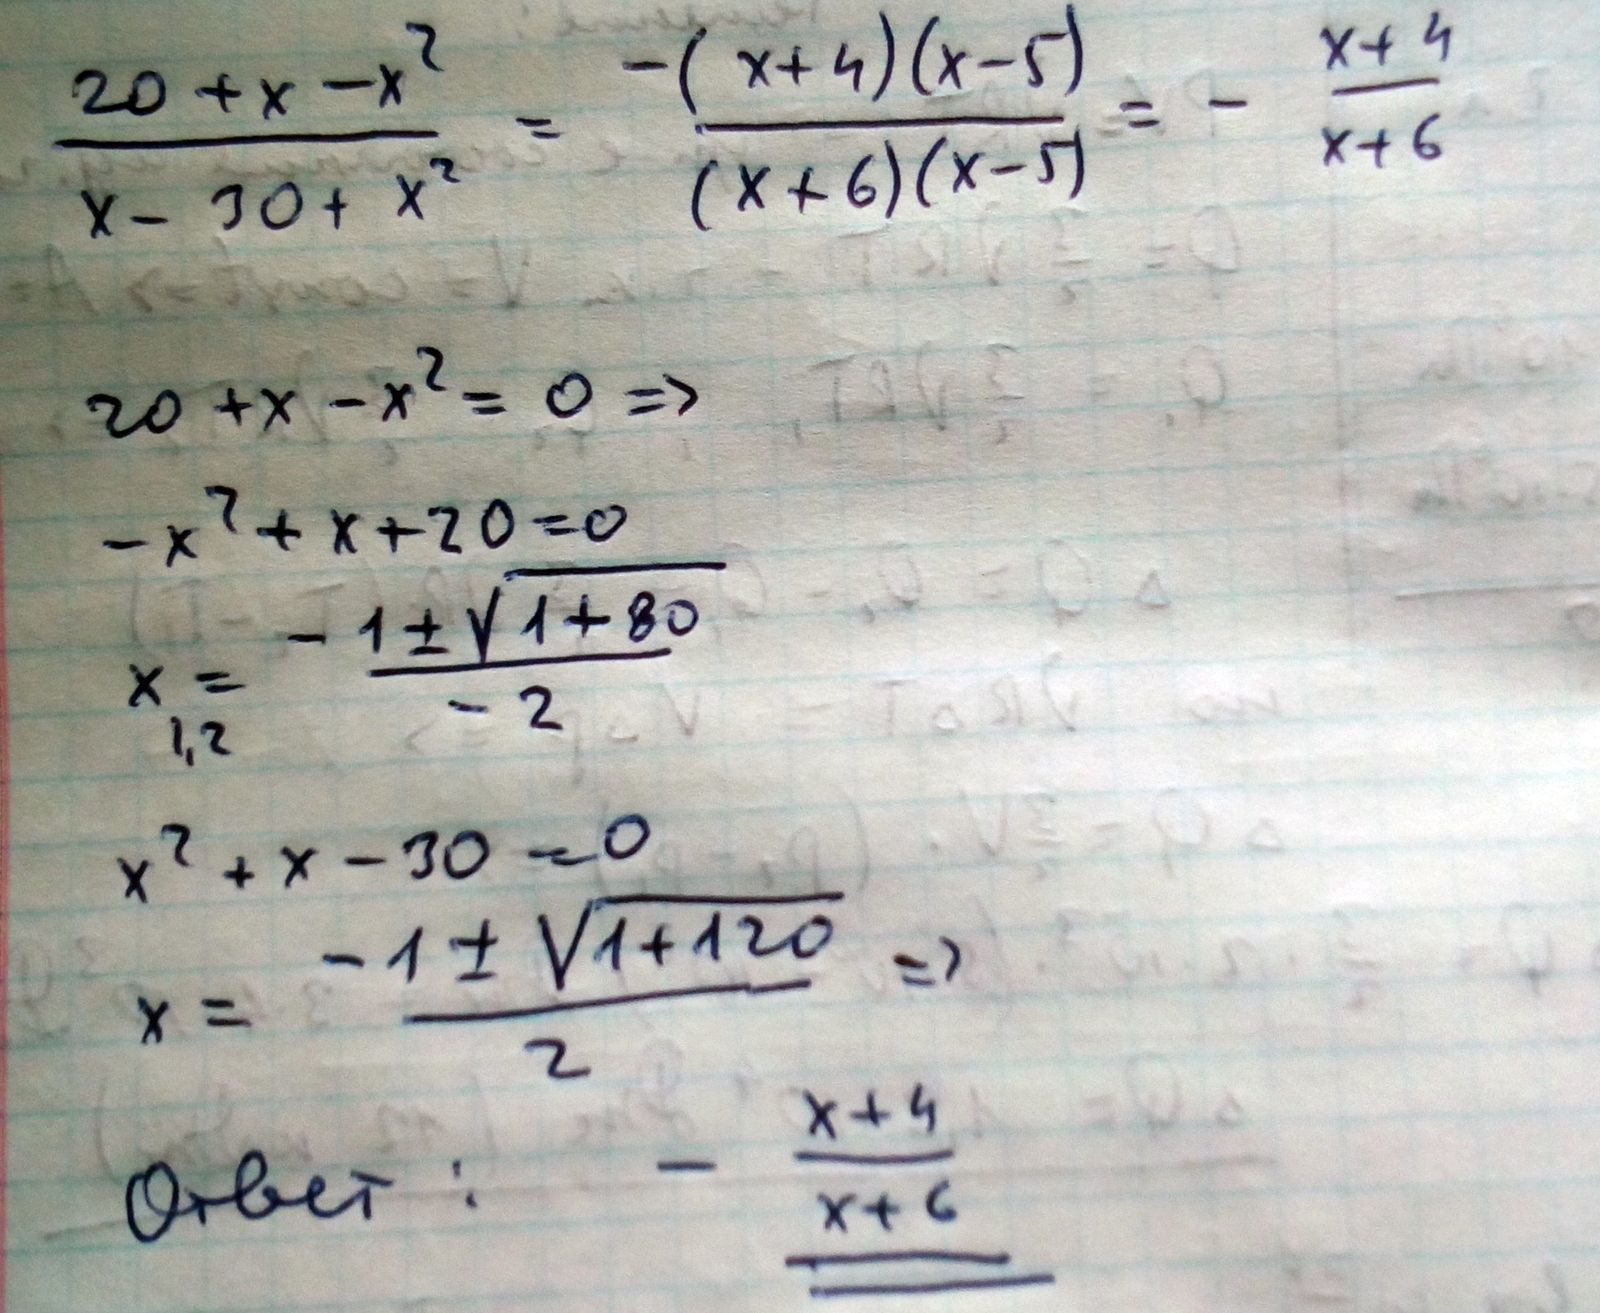 (20 + x - x²)/(x - 30 + x²) = (-(x+4)(x-5))/((x+6)(x-5)) = - (x+4)/(x+6)
20 + x - x² = 0 =>
-x² + x + 20 = 0
x₁,₂ = (-1 ± √(1+80))/(-2)
x² + x - 30 = 0
x = (-1 ± √(1+120))/2 =>
Ответ : - (x+4)/(x+6)